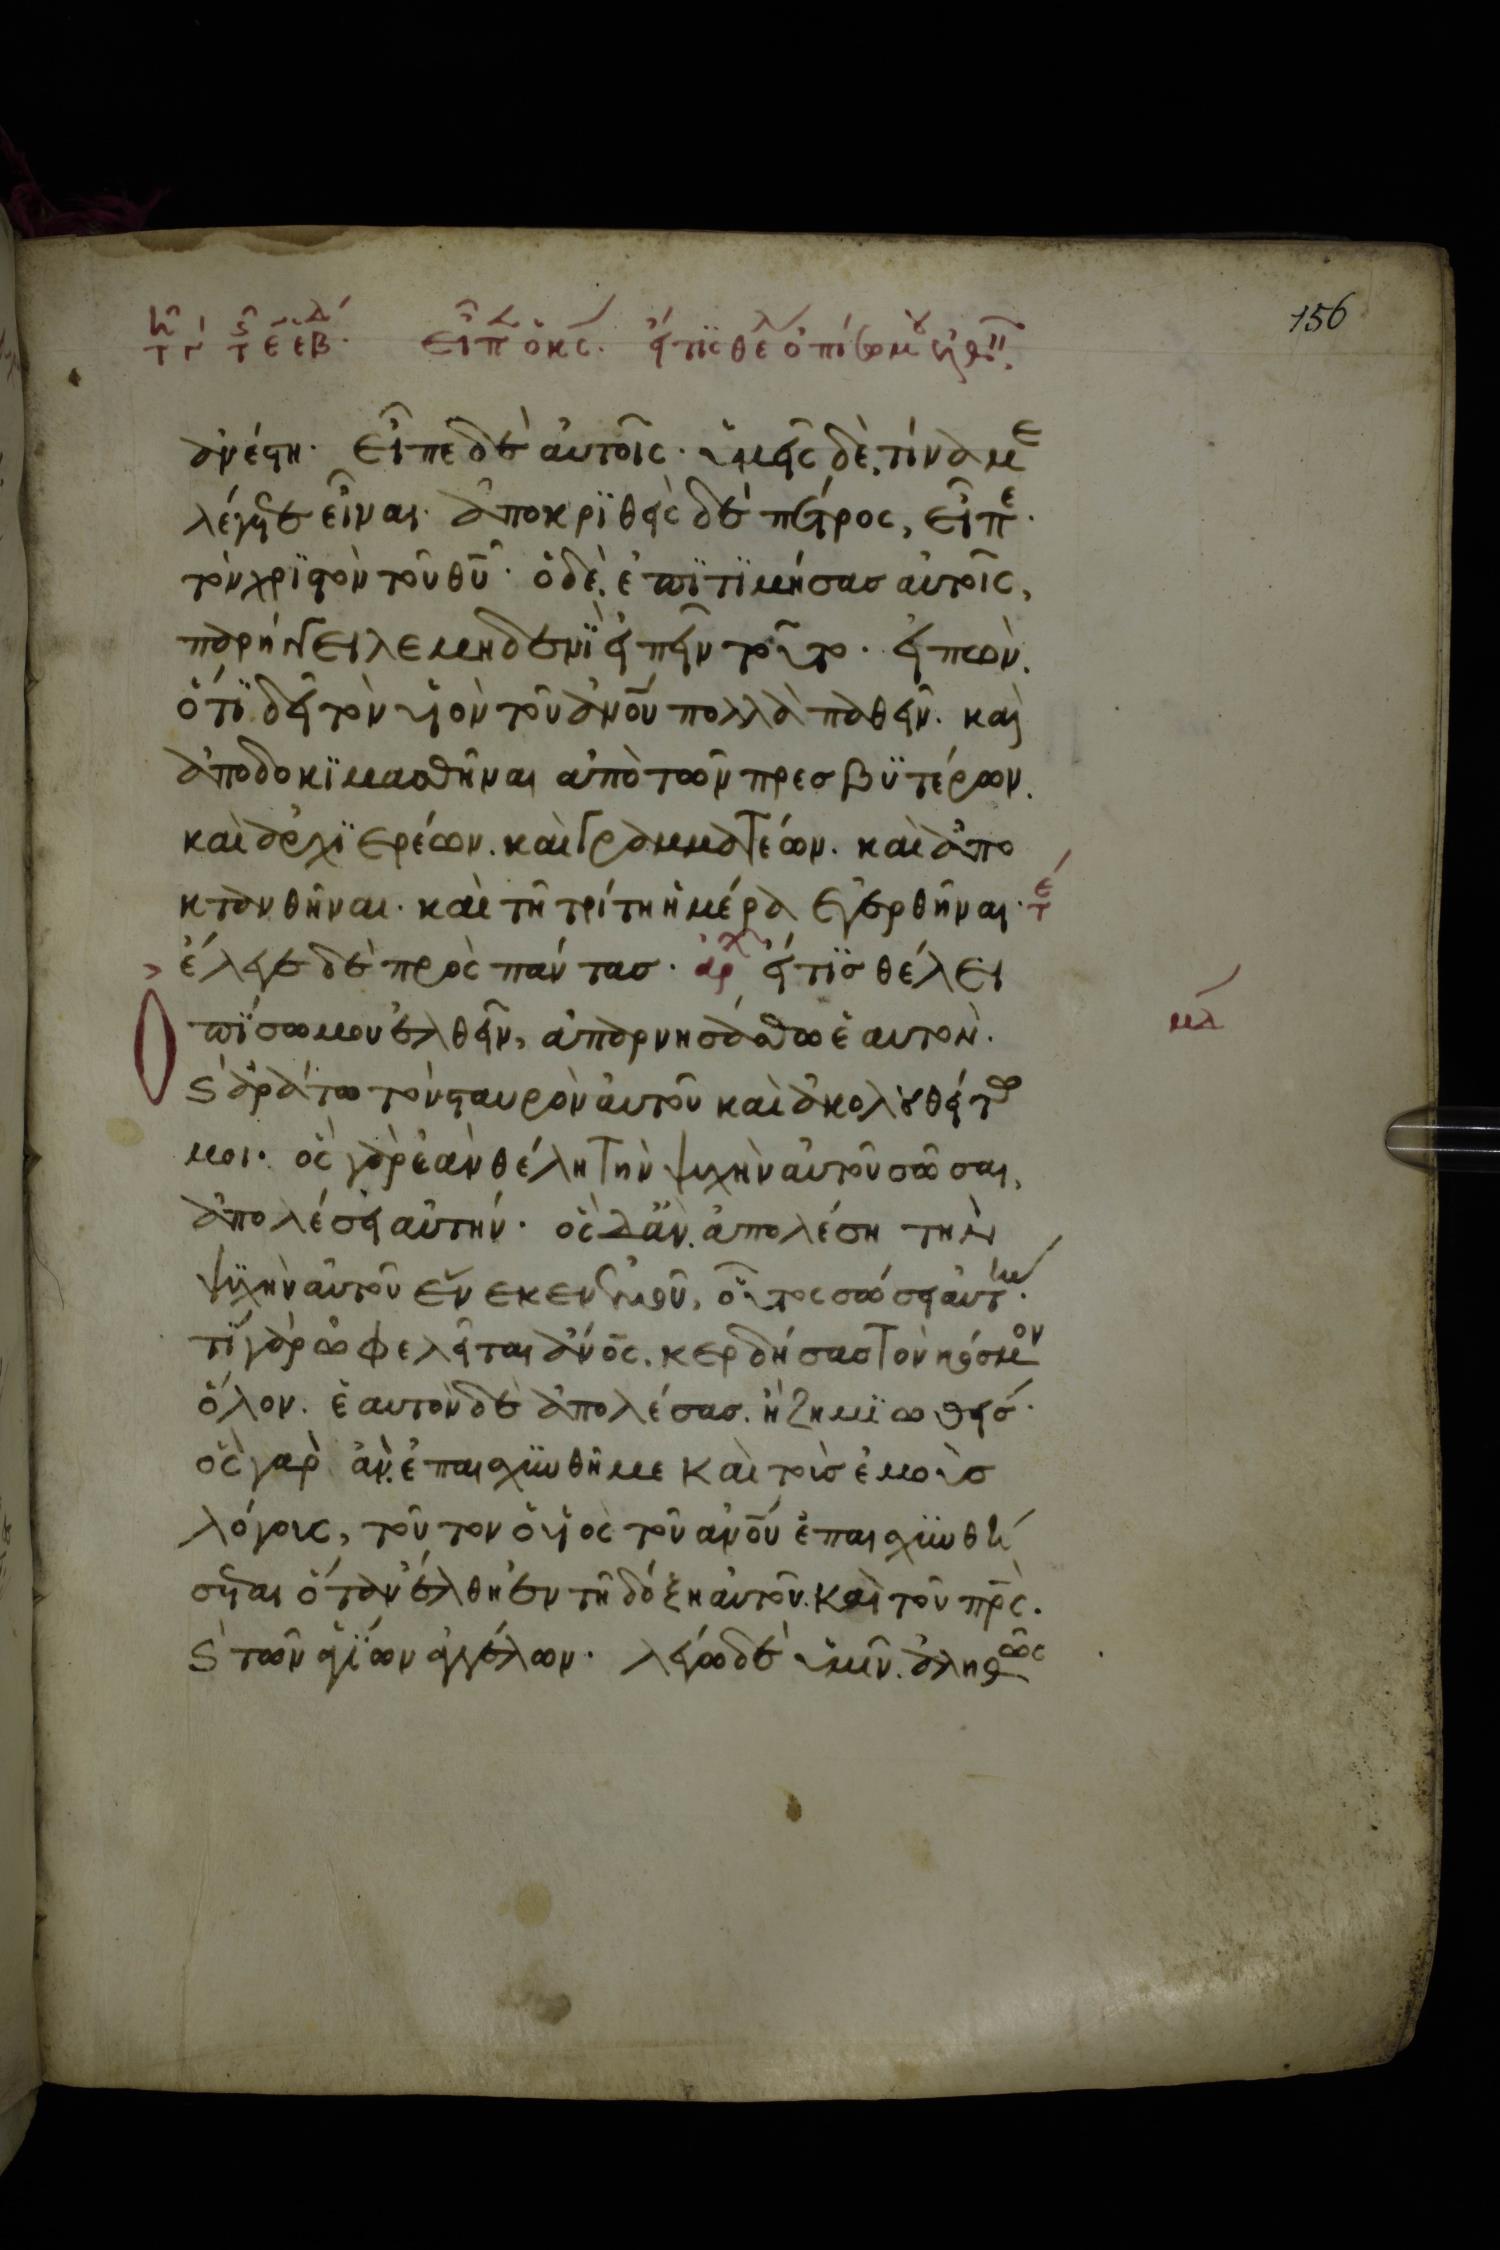 156
τῇ γ τῆς ε ἑβδ. εἶπεν ὁ κς. εἴ τις θέλει ὀπίσω μου ἐλθεῖν.
ἀνέστη. εἶπε δὲ αὐτοῖς. ὑμεῖς δὲ, τίνα με
λέγετε εἶναι. ἀποκρϊθεὶς δὲ πέτρος, εἶπε.
τὸν χρϊστὸν τοῦ θῦ. ὁ δὲ, ἐπϊτϊμήσας αὐτοῖς,
παρήγγειλε μηδενῒ εἰπεῖν τοῦτο. εἰπὼν.
ὅτϊ δεῖ τὸν υἱὸν τοῦ ἀνοῦ πολλὰ παθεῖν. και
ἀποδοκϊμασθῆναι ἀπὸ τῶν πρεσβϋτέρων.
καὶ ἀρχϊερέων. καὶ γραμματέων. καὶ ἀπο
κτανθῆναι. καὶ τῆ τρίτη ἡμέρα ἐγερθῆναι. τέ
ἔλεγε δὲ πρὸς πάντας. ἀρχ εἴ τϊς θέλει
ὀπϊσω μου ἐλθεῖν, ἀπαρνησάσθω ἑαυτὸν. μλ
ϛ ἀράτω τὸν σταυρὸν αὐτοῦ καὶ ἀκολουθείτω
μοι. ὃς γὰρ ἐὰν θέλη τὴν ψυχὴν αὐτοῦ σῶσαι,
ἀπολέσει αὐτήν. ὃς δ' ἂν. ἀπολέση τὴν
ψϋχὴν αὐτοῦ ἕνεκεν ἐμοῦ, οὗτος σώσει αὐτήν.
τϊ γὰρ ὠφελεῖται ἀνος. κερδήσας τὸν κόσμον
ὅλον. ἑαυτὸν δὲ ἀπολέσας. ἢ ζημϊωθείς.
ὃς γὰρ ἂν. ἐπαισχϋνθῆ με καὶ τοὺς ἐμοὺς
λόγους, τοῦτον ὁ υἱὸς τοῦ ἀνοῦ ἐπαισχϋνθή
σεται ὅταν ἔλθη ἐν τῆ δόξη αὐτοῦ. καὶ τοῦ πρς.
ϛ τῶν ἁγϊων ἀγγέλων. λέγω δὲ ὑμῖν. ἀληθῶς